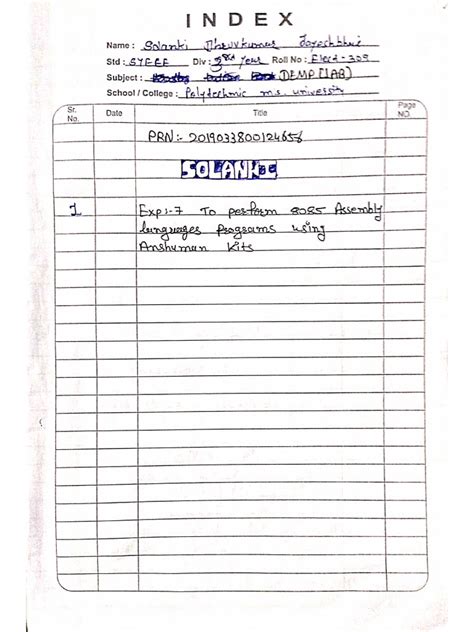 INDEX
Name: Solanki Dhruvkumar Jayeshbhai
Std: SYEEE Div: 3rd year Roll No: Elect-309
Subject: DEMP [LAB]
School / College: Polytechnic m.s. university
Sr. No. Date Title Page NO.
PRN:- 2019033800124656
SOLANKI
1 Exp:-7 To perform 8085 Assembly
languages Programs using
Anshuman Kits